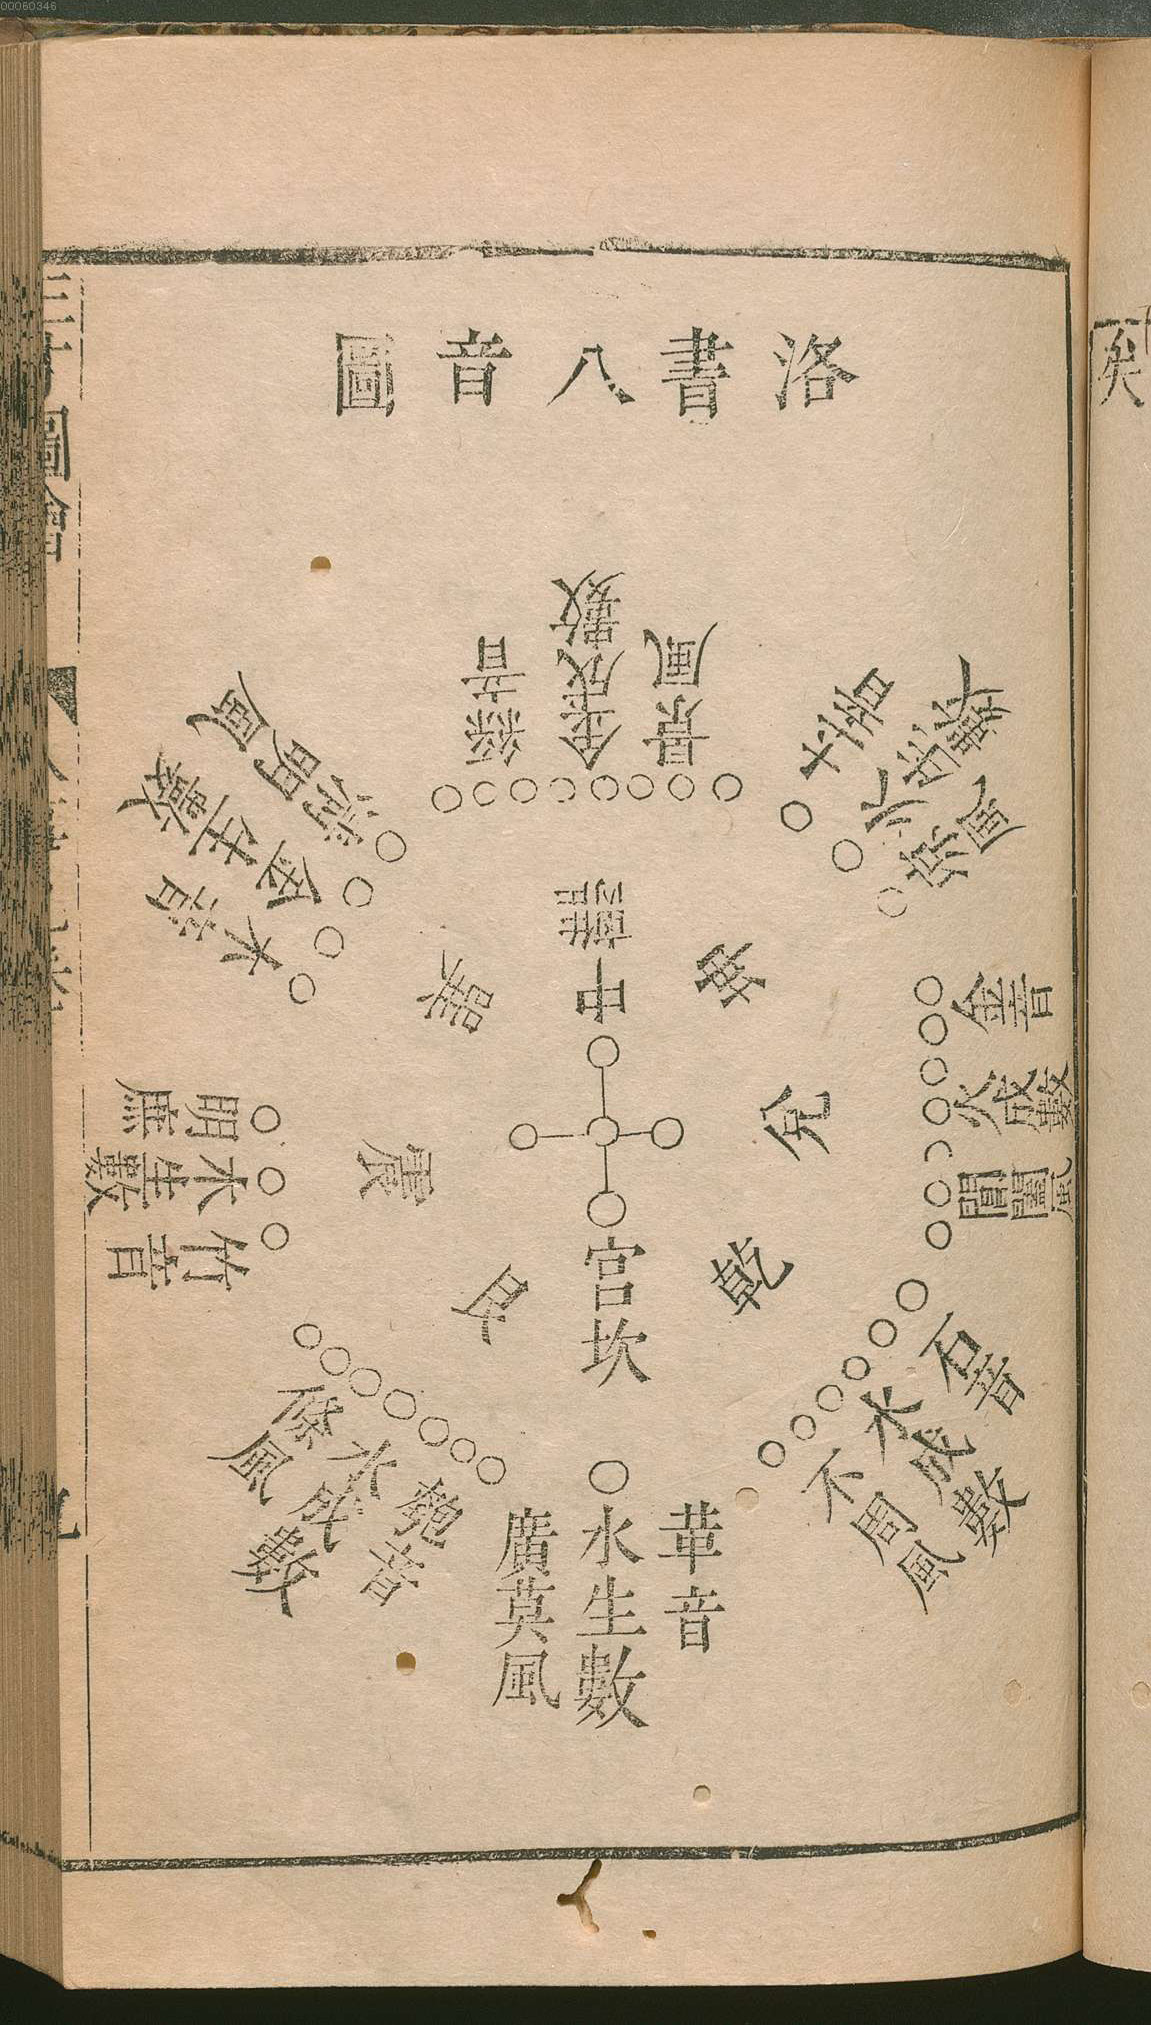 00060346
洛書八音圖
絲音
金成數
景風
土音
火生數
涼風
金音
火成數
閶闔風
石音
木成數
不周風
革音
水生數
廣莫風
匏音
水成數
條風
竹音
木生數
明庶
木音
金生數
清明風
離
坤
兌
乾
坎
艮
震
巽
中
宮
三才圖會